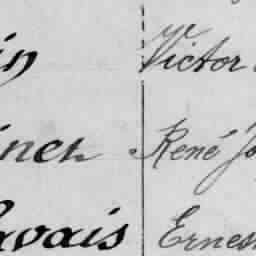 in Victor
René Jo
vais Ernes